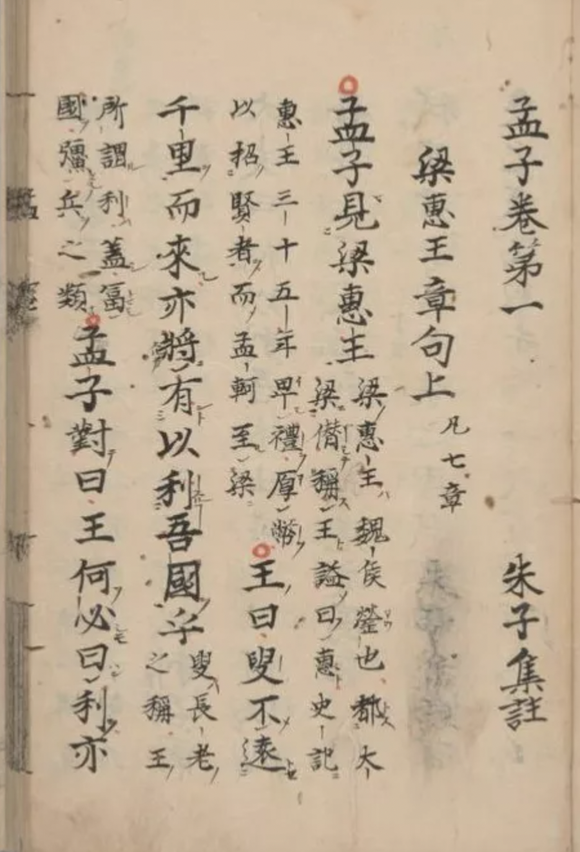 孟子卷第一 朱子集註
梁惠王章句上 凡七章
孟子見梁惠王
梁惠王魏侯罃也都大
梁僭稱王謚曰惠史記
惠王三十五年卑禮厚幣
以招賢者而孟軻至梁
王曰叟不遠
千里而來亦將有以利吾國乎
叟長老
之稱王
所謂利蓋冨
國彊兵之類
孟子對曰王何必曰利亦